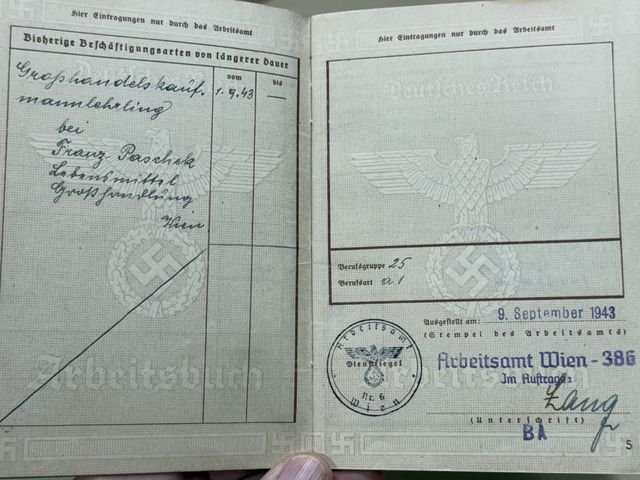 Hier Eintragungen nur durch das Arbeitsamt
Bisherige Beschäftigungsarten von längerer Dauer
vom
bis
Großhandelskauf-
mannlehrling
1.9.43
—
bei
Franz Paschek
Lebensmittel
Großhandlung
Wien
Arbeitsbuch
Hier Eintragungen nur durch das Arbeitsamt
Deutsches Reich
Berufsgruppe 25
Berufsart a 1
Ausgestellt am: 9. September 1943
(Stempel des Arbeitsamts)
Arbeitsamt
Dienstsiegel
Nr. 6
Wien
Arbeitsamt Wien - 386
Im Auftrage:
(Unterschrift)
BA
5